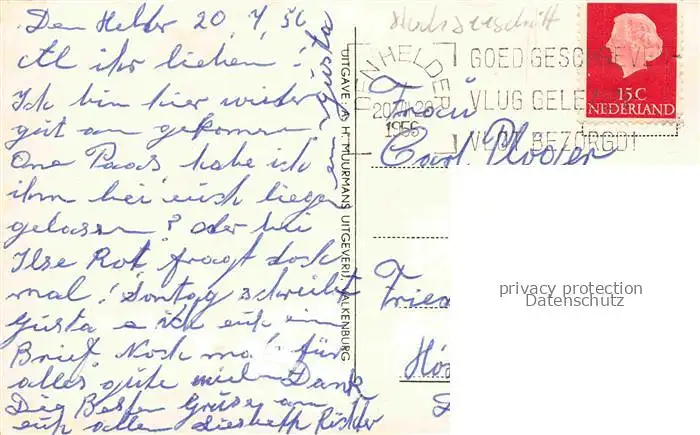 Den Helder 20, 4, 56
All ihr lieben!
Ich bin hier wieder
gut an gekommen
One Paas habe ich
ihm bei euch liegen
gelassen? oder bei
Ilse Rot fragt doch
mal! Sontag schreibt
Gusta e ich euch ein
Brief. Noch mal für
alles gute mielen Dank
Die Besten Grüse an
euch allen Liesbeth Richter
UITGAVE: A. H. MUURMANS UITGEVERIJ, VALKENBURG
DEN HELDER
1956
GOED GESCHREVEN
VLUG GELE
VLUG BEZORGD!
15C
NEDERLAND
Frau
Carl Ploder
Fries
privacy protection
Datenschutz